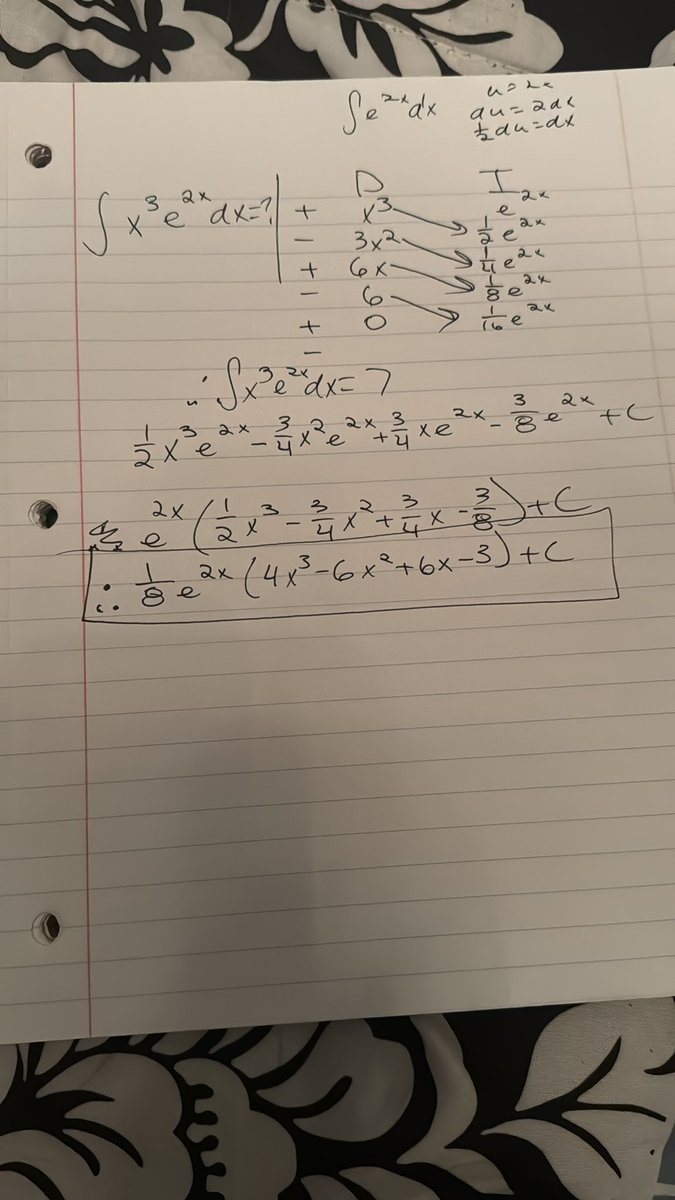 ∫e^{2x}dx
u=2x
du=2dx
½du=dx
∫x³e^{2x}dx=?
D I
+ x³ e^{2x}
− 3x² ½e^{2x}
+ 6x ¼e^{2x}
− 6 ⅛e^{2x}
+ 0 1/16 e^{2x}
−
∴ ∫x³e^{2x}dx=?
½x³e^{2x} − ¾x²e^{2x} + ¾xe^{2x} − ⅜e^{2x} + C
e^{2x}(½x³ − ¾x² + ¾x − ⅜) + C
∴ ⅛e^{2x}(4x³−6x²+6x−3) + C